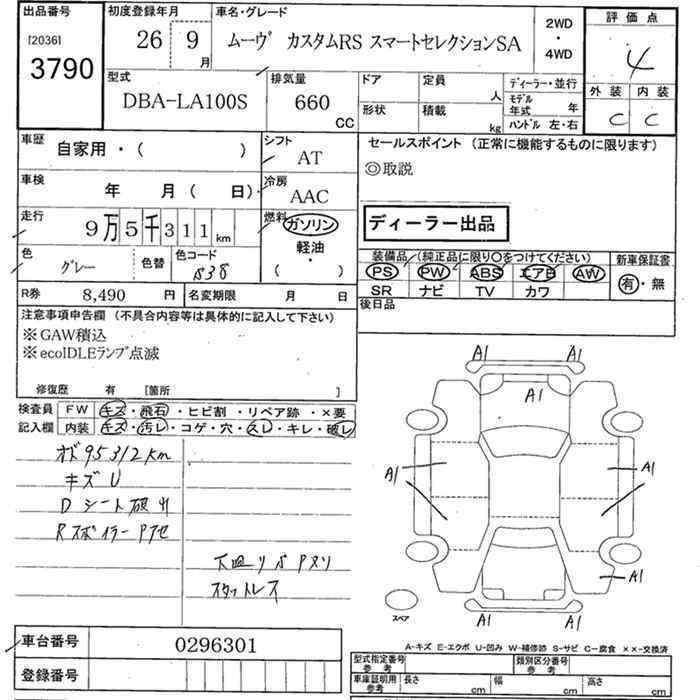 出品番号
[2036]
3790
初度登録年月
26 9
月
車名・グレード
ムーヴ カスタムRS スマートセレクションSA
2WD
・
4WD
評価点
4
外装 内装
C C
型式
DBA-LA100S
排気量
660
CC
ドア 定員
人
形状 積載
kg
ディーラー・並行
モデル
年式 年
ハンドル 左・右
車歴
自家用・( )
シフト
AT
車検
年 月( 日)
冷房
AAC
走行
9万5千311km
燃料
ガソリン
軽油
・
( )
色
グレー
色替
色コード
R券 8,490 円
名変期限 月 日
セールスポイント (正常に機能するものに限ります)
◎取説
ディーラー出品
装備品(純正品に限り○をつけてください)
PS PW ABS エアB AW
SR ナビ TV カワ
新車保証書
有・無
後日品
注意事項申告欄 (不具合内容等は具体的に記入して下さい)
※GAW積込
※ecoIDLEランプ点滅
修復歴 有 [箇所 ]
検査員
記入欄
FW キズ・飛石・ヒビ割・リペア跡・×要
内装 キズ・汚レ・コゲ・穴・スレ・キレ・破レ
オド95312km
キズU
Dシート破れ
Rスポイラー
スタットレス
A1 A1
A1
A1 A1
A1
スペア
A-キズ E-エクボ U-凹み W-補修跡 S-サビ C-腐食 ××-交換済
車台番号 0296301
登録番号
型式指定番号
参考
類別区分番号
参考
車庫証明用
参考
長さ cm 幅 cm 高さ cm